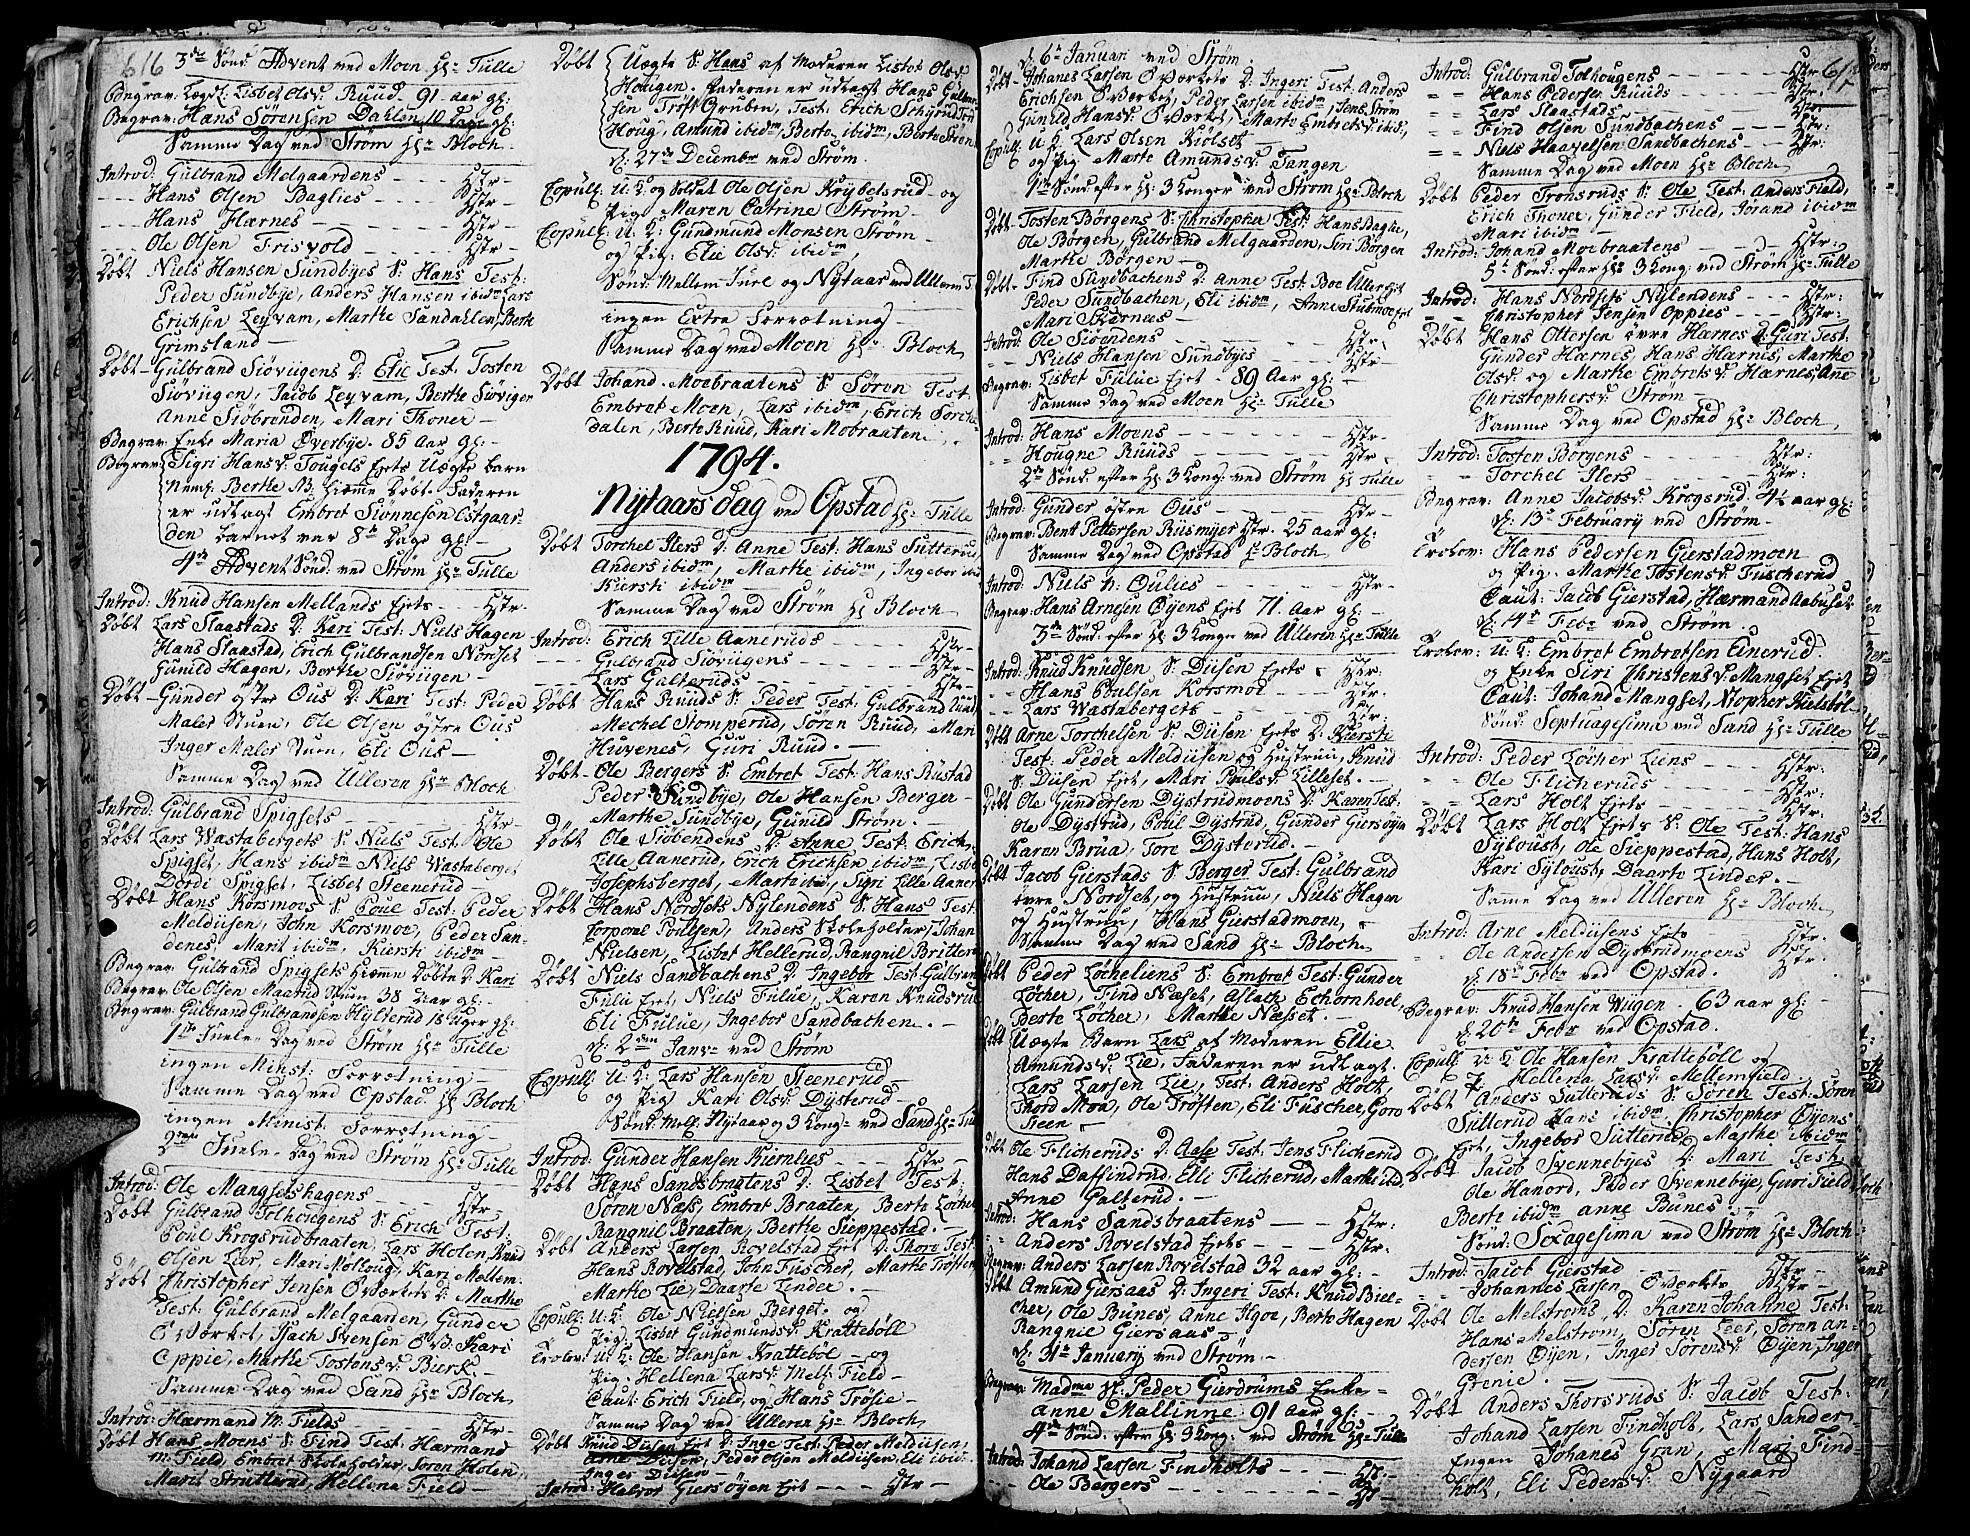 616
3de Sønd: Advent ved Moen Hr: Tulle
Begrav: Logsl. Lisbet Olsd: Ruud 91 aar gl:
Begrav: Hans Sørensen Dahlen, 10 Dage gl:
Samme Dag ved Strøm Hr: Bloch
Introd: Gulbrand Melgaardens - - - Hstr -
- - - Hans Olsen Baglies - - - Hstr -
- - - Hans Hærnes - - - Hstr -
- - - Ole Olsen Frisvold - - - Hstr -
Døbt Niels Hansen Sundbyes S: Hans Test:
Peder Sundbye, Anders Hansen ibidm Lars
Erichsen Leyvam, Marthe Sandahlen, Berte
Grimsland -
Døbt - Gulbrand Siøvugens D: Elie Test. Tosten
Siøvugen, Jacob Leyvam, Berthe Siøvigen
Anne Siøbrenden, Mari Thoner -
Begrav: Enke Maria Øverbye. 85 aar gl: -
Begrav: Sigri Hansd: Tougels Ejets Uægte barn
Nemf. Berthe NB. hiæme Døbt. Faderen
er udlagt Embret Siønnesen Ostgaar-
den barnet var 8te Dage gl: -
4de Advent Sønd: ved Strøm Hr: Tulle
Introd: Knud Hansen Mellands Ejets - - Hstr -
Døbt Lars Slaastads D: Kari Test: Niels Hagen
Hans Slaastad, Erich Gulbrandsen Nordset
Gunild Hagen, Berthe Siøvugen -
Døbt - Gunder østre Ous D: Kari Test: Peder
Maler Stuen, Ole Olsen østre Ous
Inger Maler Stuen, Eli Ous -
Samme Dag ved Ulleren Hr: Bloch
Introd: Gulbrand Spigsets - - - Hstr -
Døbt Lars Wastabergets S: Niels Test: Ole
Spigset, Hans ibidm Niels Wastaberget
Dordi Spigset, Lisbet Steenerud -
Døbt Hans Korsmoes S: Poul Test: Peder
Melduisen, John Korsmoe, Peder San-
denes, Marit ibidm, Kiersti ibidm -
Begrav Gulbrand Spigsets hiæme Døbte D: Kari
Begrav: Ole Olsen Maarud Stuen 38 aar gl: -
Begrav: Gulbrand Gulbrandsen Hylterud 18 Uger gl:
1te Juele-Dag ved Strøm Hr: Tulle
ingen Minist: Forrætning -
Samme Dag ved Opstad Hr: Bloch
ingen Minist. Forrætning -
2den Juele-Dag ved Strøm Hr: Tulle
Introd: Ole Mangsetshagens - - - Hstr -
Døbt Gulbrand Tolhougens S: Erich Test:
Poul Krogsrudbraaten, Lars Holen, Knud
Olsen Lier, Mari Moltoug, Kari Mellem:
Døbt Christopher Jensen Øværkets D: Marthe
Test: Gulbrand Melgaarden, Gunder
Øværket, Isach Svensen ØvD: Kari
Oppie, Marthe Tostensd: Bierk -
Samme Dag ved Sand Hr: Bloch
Introd: Hærmand M: Fields - - - Hstr -
Døbt Hans Moens S: Find Test: Hærmand
M: Field, Embret Skoleholder, Soren Holen,
Marit Strutterud, Hellena Field -
Døbt Uægte S: Hans af Moderen Lisbet Olsd:
Hougen. Faderen er udlagt Hans Gulbran-
sen Troft Gruben, Test: Erich Schyrud Tron
Houg, Amund ibidm, Berte ibidm, Berthe Støen
d: 27de Decembr ved Strøm
Copull: U: K: og Soldat Ole Olsen Krybelsrud og
Pig: Maren Catrine Strøm -
Copull: U: K: Gundmund Monsen Strøm -
og Pig: Elie Olsd: ibidm,
Sønd: Mellem Jule og Nytaar ved Ulleren T
ingen Extra Forrætning -
Samme Dag ved Moen Hr: Bloch
Døbt Johand Moebraatens S: Søren Test
Embret Moen, Lars ibidm, Erich Torche
dalen, Berte Ruud, Kari Mobraaten
1794.
Nytaarsdag ved Opstad Hr: Tulle
Døbt Torchel Ilers D: Anne Test: Hans Sutterud
Anders ibidm, Marthe ibidm, Ingebor ibid
Kiersti ibidm -
Samme Dag ved Strøm Hr Bloch
Introd: Erich Lille Aaneruds - - Hstr -
- - - Gulbrand Siøvugens - - Hstr -
- - - Lars Galteruds - - Hstr -
Døbt Hans Ruuds S: Peder Test: Gulbrand Ruud
Mechel Stomperud, Søren Ruud, Mari
Huvenes, Guri Ruud. -
Døbt - Ole Bergers S: Embret Test: Hans Bustad
Peder Sundbye, Ole Hansen Berger -
Marthe Sundbye, Gunild Strøm -
Døbt Ole Siøbendens D: Anne Test: Erich
Lille Aanerud, Erich Erichsen ibidm, Lisbet
Josephsberget, Marte ibid, Sigri Lille Aaner
Døbt Hans Nordsets Nylendens S: Hans Test:
Torponi Poulsen, Anders Skoleholder, Johan
Nielsen, Lisbet Hellerud, Rangnil Britteru
Døbt Niels Sandbachens D: Ingebor Test: Gulbrand
Fulu Ejet, Niels Fulue, Karen Knudsrud
Eli Fulue, Ingebor Sandbachen. -
d: 2den Janv: ved Strøm
Copull: U: K: Lars Hansen Steenerud -
og Pig Kari Olsd: Dysterud -
Sønd: Mell. Nytaar og 3 Kong: ved Sand Hr: Tul
Introd: Gunder Hansen Kiernlies - - - Hstr -
Døbt Hans Sandsbraatens D: Lisbet Test:
Søren Næss, Embret Braaten, Berte Løcher
Rangnil Braaten, Berthe Sieppestad. -
Døbt Anders Larsen Rovelstad Ejet D: Thore Test
Hans Rovelstad, John Fuscher, Marte Trøften
Marthe Lie, Daarte Linder. -
Copull: U: K: Ole Nielsen Berget og
Pig: Lisbet Gundmundsd: Krattebøll
Trolov: U: K: Ole Hansen Krattebøl - og
Pig - Hellena Larsd: Melf. Field -
Caut: Erich Field, og Hans Trøsie -
Samme Dag ved Ulleren Hr: Bloch
Døbt Knud Diisen Ejet D: Inge Test: Peder Melduisen,
Arne Diisen, Peder Olsen Melduisen, Eli ibid:
Inges Diisen -
Introd: Halvor Giersøyen Ejet - - - Hstr -
d: 6te Januari ved Strøm:
Døbt - Johanes Larsen Øværkets D: Ingeri Test: Anders
Erichsen Øværket, Peder Larsen ibidm, Jens Strøm
Gunild Hansd: Øværket, Marte Embretsd: ibid,
Copull: U: K: Lars Olsen Kiølset
og Pig Marte Amundsd: Tangen
1ste Sønd: efter Hl: 3 Konger ved Strøm Hr: Bloch
Døbt - Tosten Børgens S: Christopher Test: Hans Baglie,
Ole Børgen, Gulbrand Melgaarden, Siri Børgen
Marthe Børgen -
Døbt - Find Sundbachens D: Anne Test: Boe Ullerset
Peder Sundbachen, Eli ibidm, Anne Stubmoeset
Mari Skærnees -
Introd: Ole Siørendens - - - Hstr -
- - Niels Hansen Sundbyes - - - Hstr -
Begrav: Lisbet Fulue Ejet - 89 Aar gl: -
Samme Dag ved Moen Hr: Tulle
Introd: Hans Moens - - - Hstr -
- - Hougne Ruuds - - - Hstr -
2den Sønd: efter Hl: 3 Kong: ved Strøm Hr Tulle
Introd: Gunder østre Ous - - - Hstr -
Begrav: Bent Pettersen Riismyer Hstr. 25 aar gl:
Samme Dag ved Opstad Hr: Bloch
Introd: Niels N: Oulies - - - Hstr -
Begrav: Hans Arnesen Øyens Ejet 71. Aar gl: -
3de Sønd: efter Hl: 3 Konger ved Ulleren Hr: Tulle
Introd: Knud Knudsen S: Diisen Ejets - Hstr:
- - Hans Poulsen Korsmoe - - - Hstr:
- - Lars Wastabergets - - - Hstr:
Døbt Arne Torchelsen S: Diisen Ejets D: Kiersti
Test: Peder Melduisen og Hustruu, Knud
S: Diisen Ejet, Mari Poulsd: Lilleset. -
Døbt Ole Gundersen Dystrudmoens D: Karen Test:
Ole Dystrud, Poul Dystrud, Gunder Giersøyen
Karen Brua, Tore Dysterud. -
Døbt Jacob Gierstads S: Berger Test: Gulbrand
øvre Nordset, og Hustruu, Niels Hagen
og Hustruu, Hans Gierstadmoen,
Samme Dag ved Sand Hr: Bloch
Døbt Peder Løcheliens S: Embret Test: Gunder
Løcher, Find Næset, Aslach Echornhoel,
Berte Løcher, Marthe Næsset. -
Døbt Uægte Barn Lars af Moderen Ellie
Amundsd: Lie, Faderen er udlagt.
Lars Larsen Lie, Test: Anders Holt,
Thord Moe, Ole Trøften, Eli Fuscher, Goro
Steen -
Døbt Ole Flicheruds D: Aase Test: Jens Flicherud
Hans Daffindrud, Elli Flicherud, Marthe ibid,
Anne Galterud. -
Introd: Hans Sandsbraatens - - - Hstr:
- - Anders Rovelstad Ejets - - - Hstr:
Begrav: Anders Larsen Rovelstad 32 aar gl: -
Døbt Amund Giersaas D: Ingeri Test: Knud Biel-
cher, Ole Bunes, Anne Ilgoe, Berte Hagen
Rangnie Giersaas -
d: 31te January ved Strøm -
Begrav: Madme Sl: Peder Gierdrums Enke -
Anne Mallinne 91 aar gl: -
4de Sønd: efter Hl: 3 Kong: ved Strøm Hr: Tulle
Introd: Johand Larsen Findholts - - - Hstr -
- - Ole Bergers - - - Hstr -
617
Introd: Gulbrand Tolhougens - - - Hstr
- - Hans Pedersen Ruuds - - - Hstr
- - Lars Slaastads - - - Hstr
- - Find Olsen Sundbachens - - - Hstr:
- - Niels Haavelsen Sandbachens - - Hstr:
Samme Dag ved Moen Hr: Bloch
Døbt Peder Tronsruds S: Ole Test: Anders Field,
Erich Thoner, Gunder Field, Jørand ibidm
Mari ibidm -
Introd: Johand Moebraatens - - - Hstr:
5te Sønd: efter Hl: 3 Kong: ved Strøm Hr: Tulle
Introd: Hans Nordsets Nylendens - - - Hstr:
- - Christopher Jensen Oppies - - - Hstr:
Døbt Hans Ottersen øvre Hærnes D: Guri Test:
Gunder Hærnes, Hans Hærnes, Marthe
Olsd: og Marthe Embretsd: Hærnes, Ane
Christophersd: Strøm -
Samme Dag ved Opstad Hr: Bloch
Introd: Tosten Børgens - - - Hstr:
- - Torchel Ilers - - - Hstr:
Begrav: Anne Jacobsd: Krogsrud. 4½ aar gl:
d: 13de February ved Strøm -
Trolov: Hans Pedersen Gierstadmoen
og Pig. Marthe Tostensd: Fuscherud
Caut: Jacob Gierstad, Hærmand Aabuset
d: 14de Febr: ved Strøm.
Trolov: U: K: Embret Embretsen Einerud
og Enke Siri Christensd: Mangset Ejet
Caut: Johand Mangset, Xtopher Kielsøl-
Sønd: Septuagesima ved Sand Hr: Tulle
Introd: Peder Løcher Liens - - - Hstr:
- - Ole Flicheruds - - - Hstr:
- - Lars Holt Ejets - - - Hstr:
Døbt Lars Holt Ejets S: Ole Test: Hans
Syloust, Ole Sieppestad, Hans Holt,
Kari Syloust, Daarto Linder. -
Same Dag ved Ulleren Hr: Bloch
Introd: Arne Melduisens Ejets - - - Hstr:
- - Ole Andersen Dystrudmoens - - Hstr:
d: 18de Febr: ved Opstad.
Begrav: Knud Hansen Wugen. 63 aar gl: -
d: 20de Febr ved Opstad.
Copull: U: K Ole Hansen Krattebøll og
P. Hellena Larsd: Mellemfield
Døbt Anders Sutteruds S: Søren Test: Søren
Sutterud Hans ibidm, Christopher Øyens
Ejet, Ingebor Sutterud, Marthe ibidm
Døbt Jacob Svennebyes D: Mari Test:
Ole Hanord, Peder Svennebye, Guri Field
Berte ibidm Anne Bunes. -
Sønd: Sexagesima ved Strøm Hr: Bloch
Introd: Jacob Gierstad - - - Hstr -
- - Johannes Larsen Øværkets - - Hstr -
Døbt Ole Melstroms D: Karen Johanne Test:
Hans Melstrøm, Søren Leer, Søren An-
dersen Øyen, Inger Sørensd: Øyen, Inger
Grenie. -
Døbt Anders Thorsruds S: Jacob Test:
Johand Larsen Findholt, Lars Sander
Engen Johanes Gran, Mari Find
holt, Eli Pedersd: Nygaard